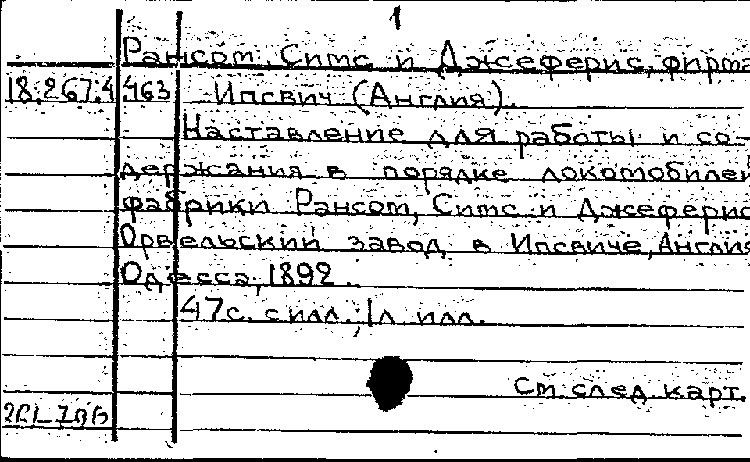 1
Рансом, Симс и Джеферис, фирма
18.267.4.463 Ипсвич (Англия).
Наставление для работы и со-
держания в порядке локомобилей
фабрики Рансом, Симс и Джеферис
Орвельский завод в Ипсвиче, Англия
Одесса, 1892.
47с. с илл.; 1л илл.
См. след. карт.